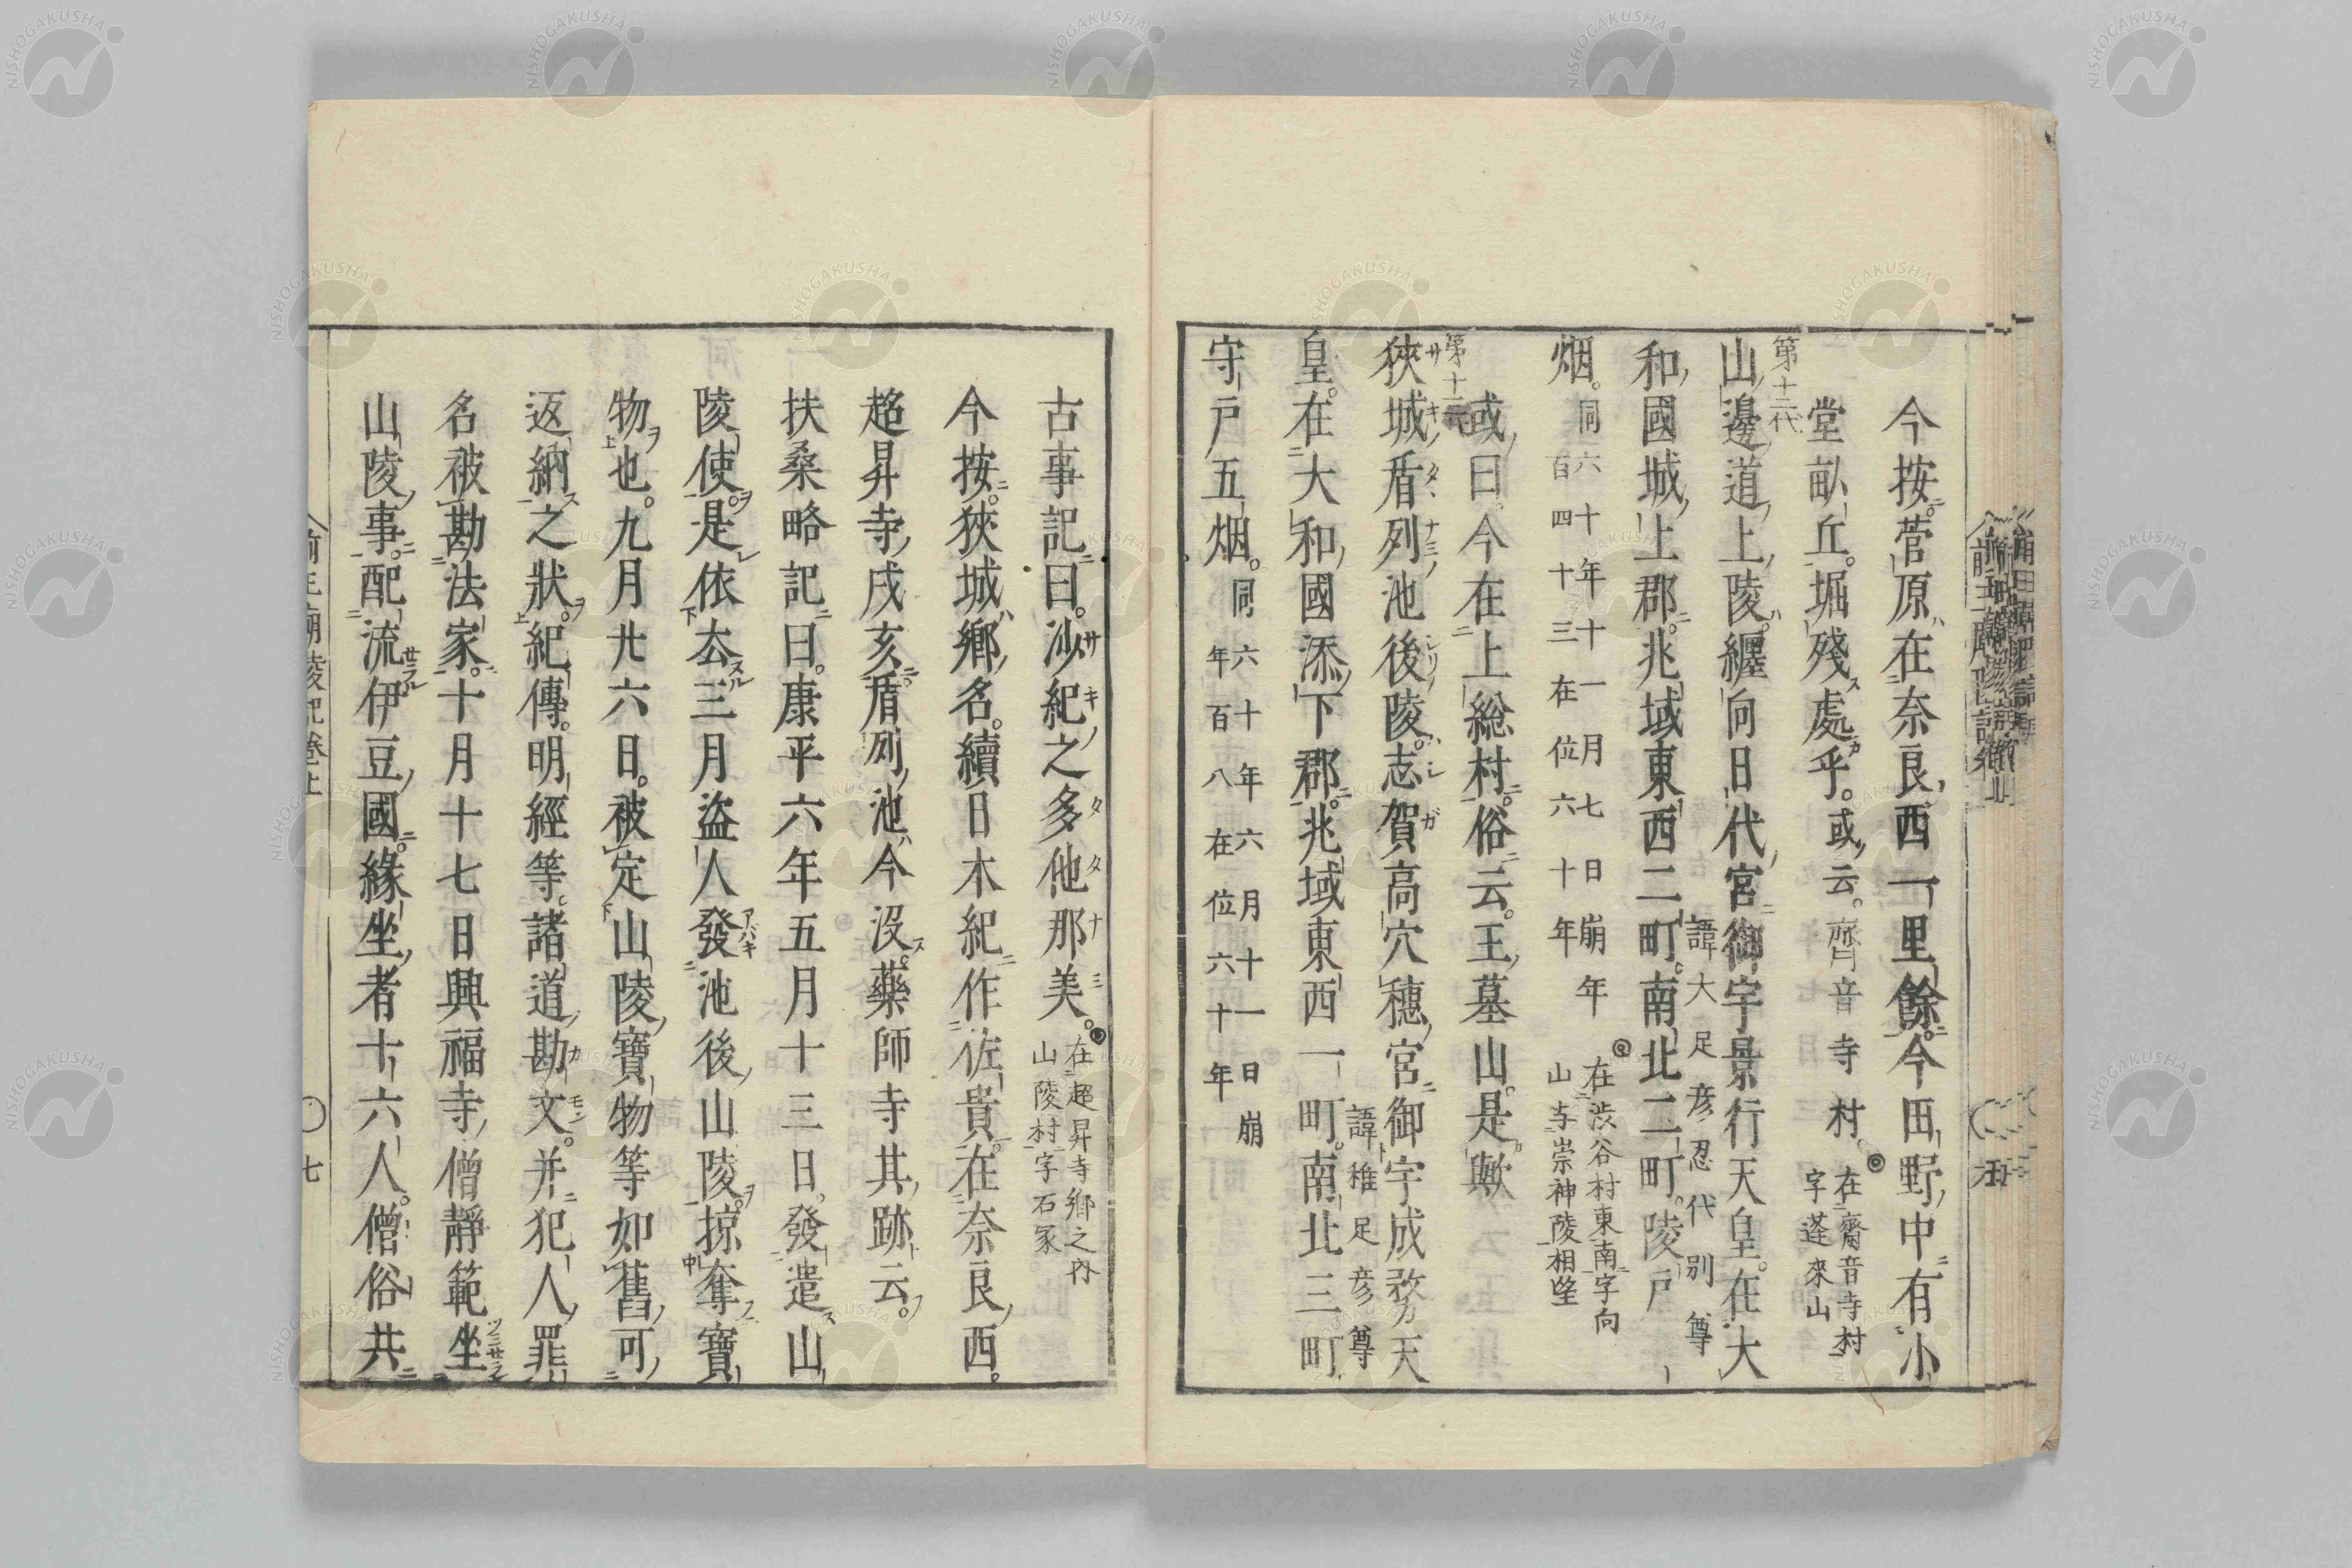 今按。菅原在奈良西一里餘。今田野中有小
堂畝丘。堀殘處乎。或云。齊音寺村。◎在齋音寺村字蓬來山
第十二代
山邊道上陵。纏向日代宮御宇景行天皇。在大
諱大足彦忍代別尊
和國城上郡。兆域東西二町。南北二町。陵戸一
烟。同六十年十一月七日崩年百四十三在位六十年◎在渋谷村東南字向山与崇神陵相望
或曰。今在上総村。俗云。王墓山。是歟
第十三代
狹城盾列池後陵。志賀高穴穗宮御宇成務天
サキノタヽナミノ シリノ ハ シガ
諱稚足彦尊
皇。在大和國添下郡。兆域東西一町。南北三町
守戸五烟。同六十年六月十一日崩年百八在位六十年
古事記曰。沙紀之多他那美。◎在超昇寺郷之内山陵村字石冢
サキノ タタナミ
今按。狹城郷名。續日本紀作佐貴。在奈良西。
超昇寺戌亥。盾列池今沒。藥師寺其跡云。
扶桑略記曰。康平六年五月十三日。發遣山
陵使。是依去三月盜人發池後山陵。掠奪寶
アバキ
物也。九月廿六日。被定山陵寶物等如舊可
返納之狀。紀傳。明經等。諸道勘文。并犯人罪
カモン
名被勘法家。十月十七日興福寺僧靜範坐
山陵事。配流伊豆國。緣坐者十六人。僧俗共
前王廟陵記卷上
七